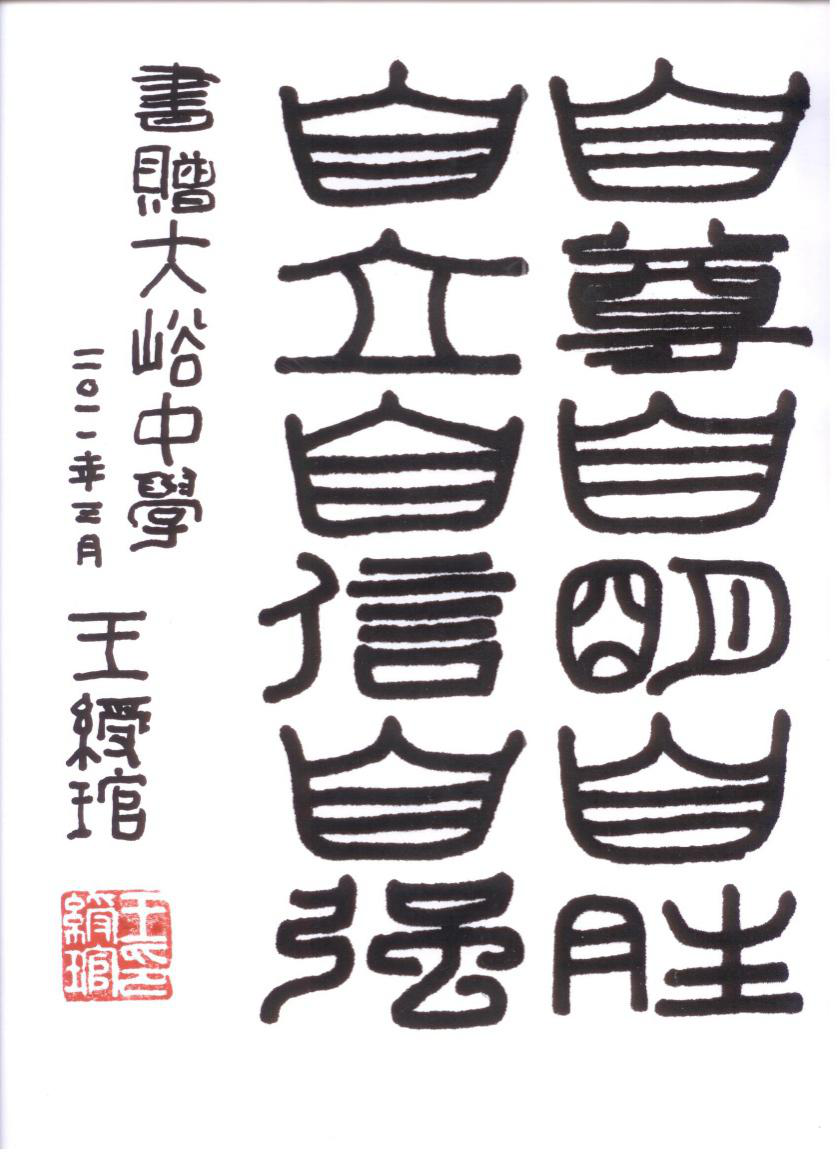 自尊自明自胜
自立自信自强
書贈大峪中學
二〇一一年三月
王綬琯
王綬琯印